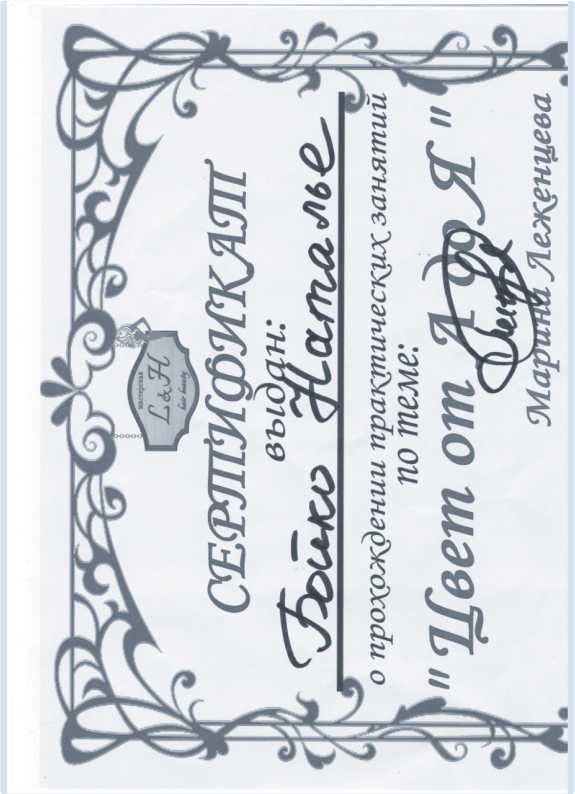 мастерская
L & H
hair beauty
СЕРТИФИКАТ
выдан:
Бойко Наталье
о прохождении практических занятий
по теме:
"Цвет от А до Я"
Марина Леженцева